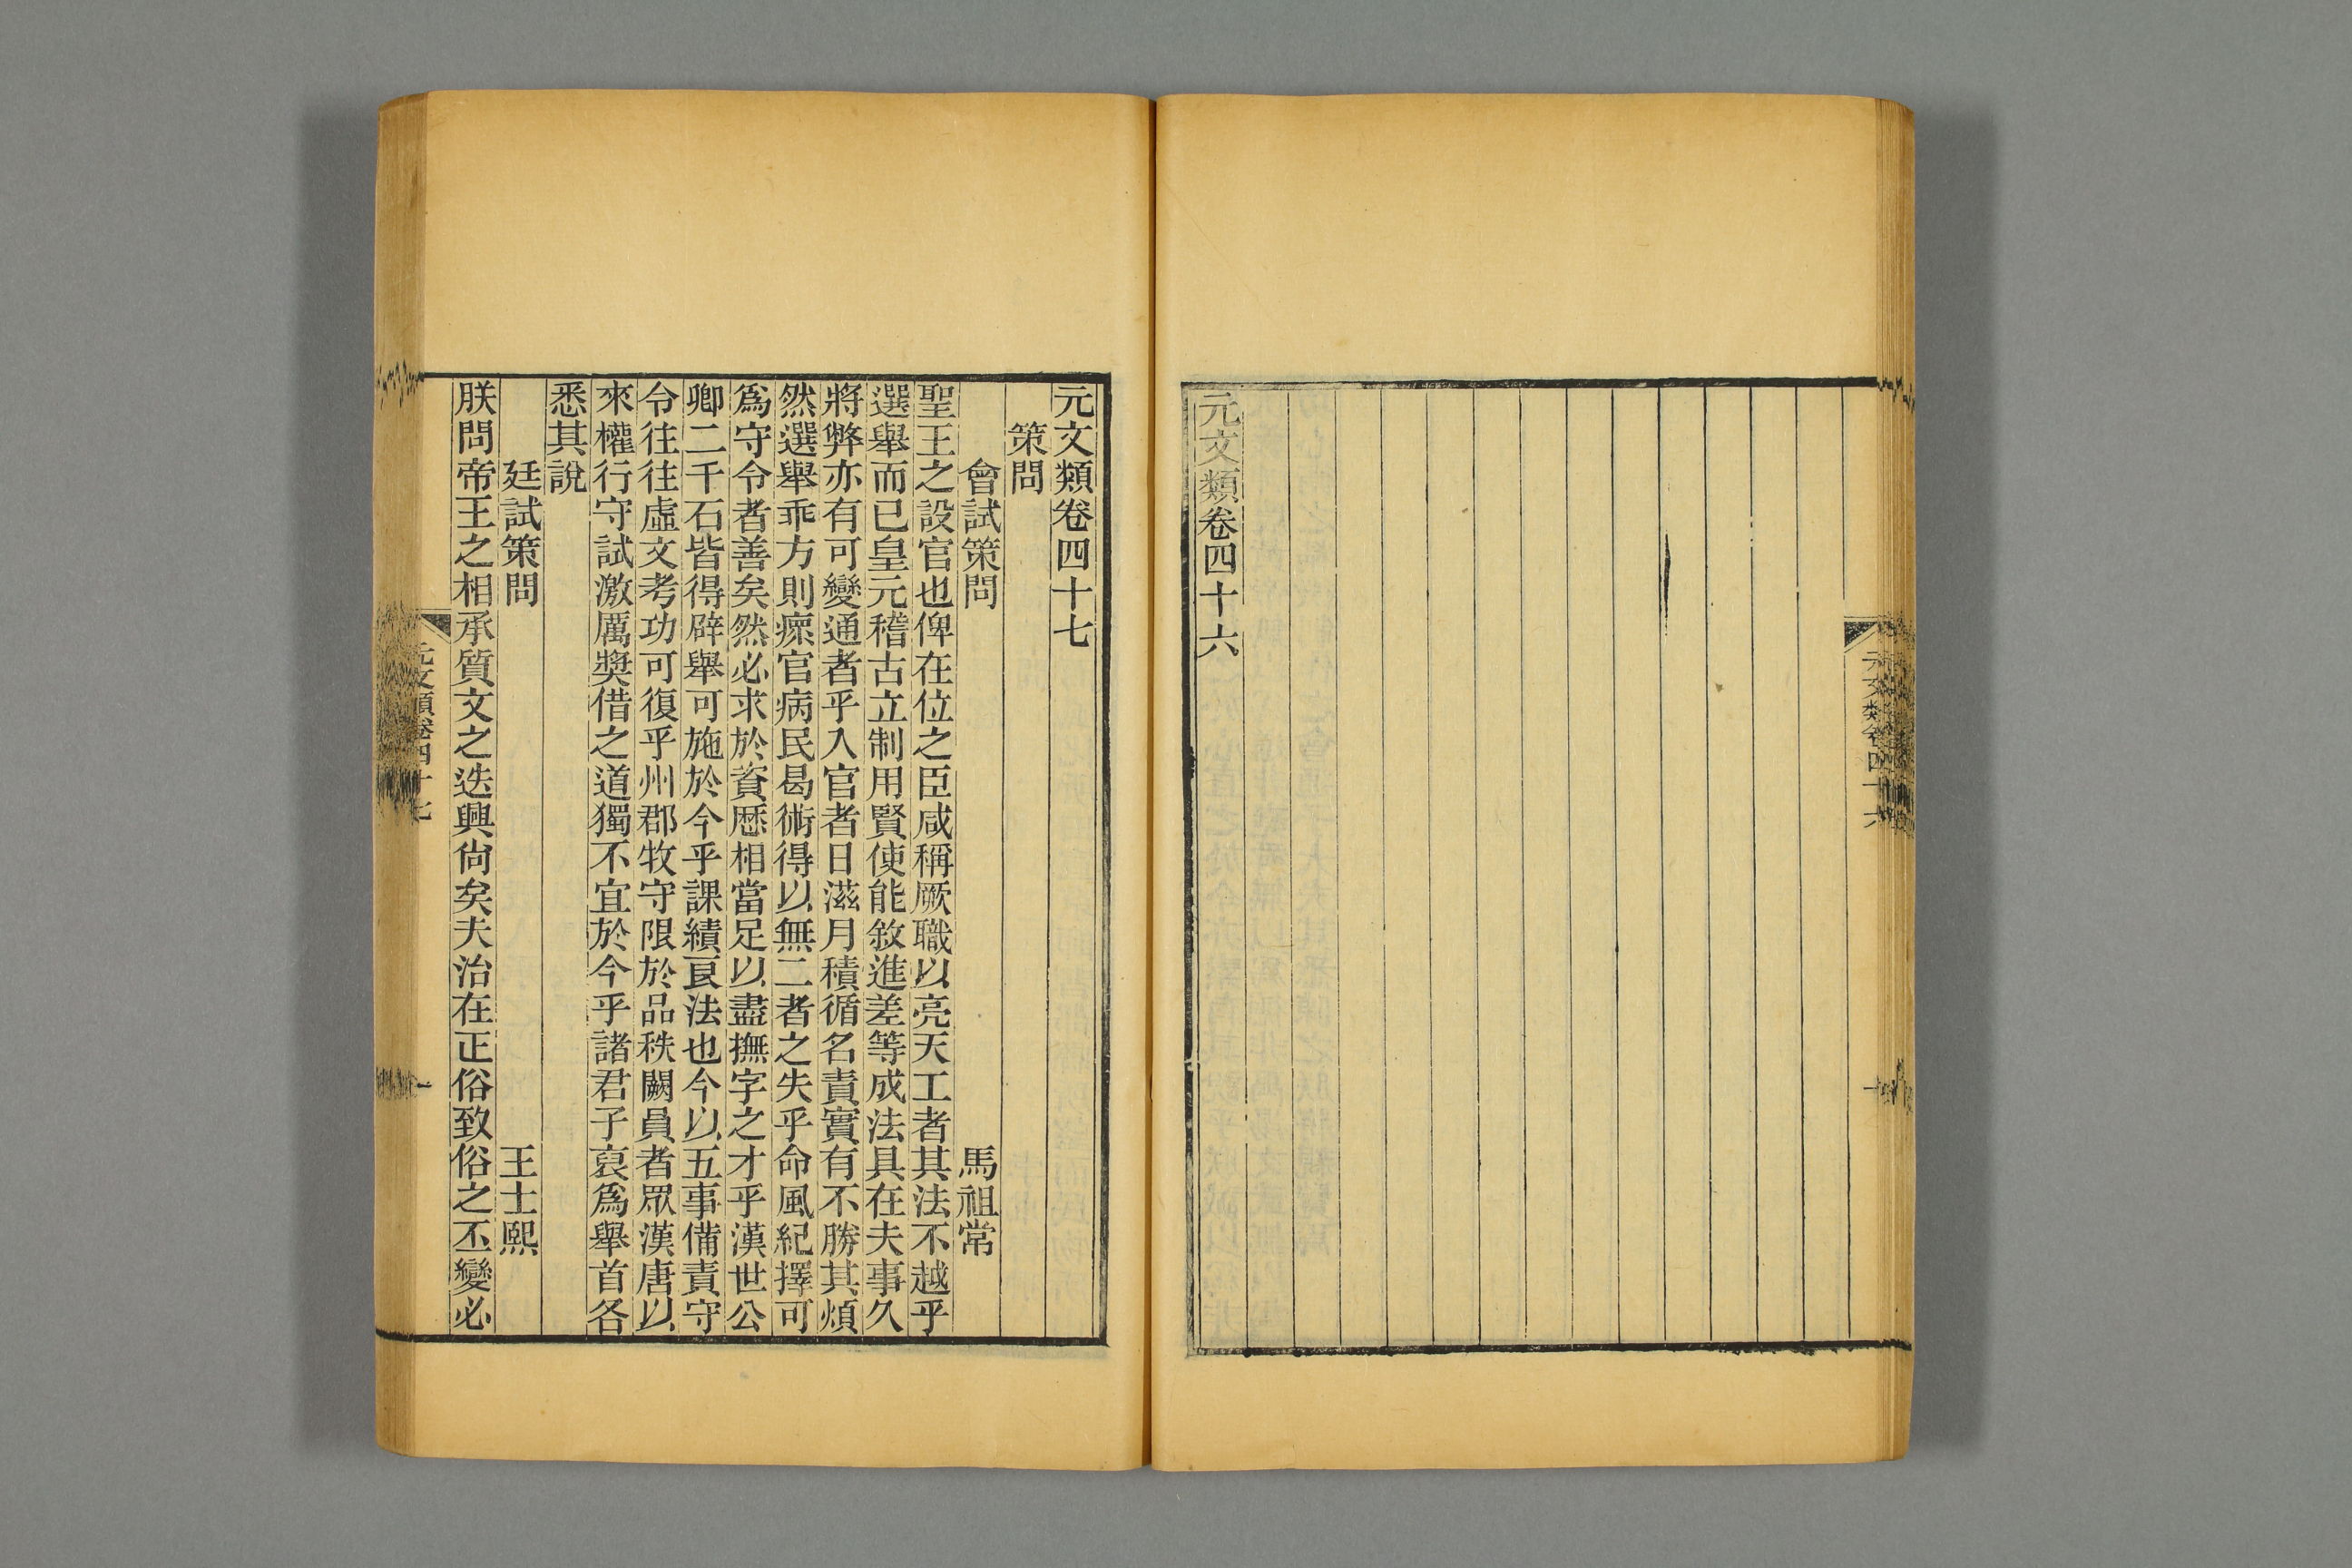 元文類卷四十六
元文類卷四十六
元文類卷四十七
策問
會試策問 馬祖常
聖王之設官也俾在位之臣咸稱厥職以亮天工者其法不越乎
選舉而已皇元稽古立制用賢使能敘進差等成法具在夫事久
將弊亦有可變通者乎入官者日滋月積循名責實有不勝其煩
然選舉乖方則瘝官病民曷術得以無二者之失乎命風紀擇可
爲守令者善矣然必求於資歷相當足以盡撫字之才乎漢世公
卿二千石皆得辟舉可施於今乎課績良法也今以五事備責守
令往往虛文考功可復乎州郡牧守限於品秩闕員者眾漢唐以
來權行守試激厲獎借之道獨不宜於今乎諸君子裒爲舉首各
悉其說
廷試策問 王士熙
朕問帝王之相承質文之迭興尙矣夫治在正俗致俗之丕變必
元文類卷四十七
一